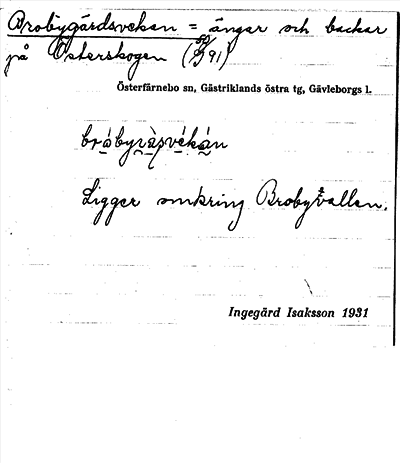 Brobygårdsvekan = ängar och backar
på Österskogen (991)
Österfärnebo sn, Gästriklands östra tg, Gävleborgs l.
bråbyvàsvékán
Ligger omkring Brobyvallen.
Ingegärd Isaksson 1931